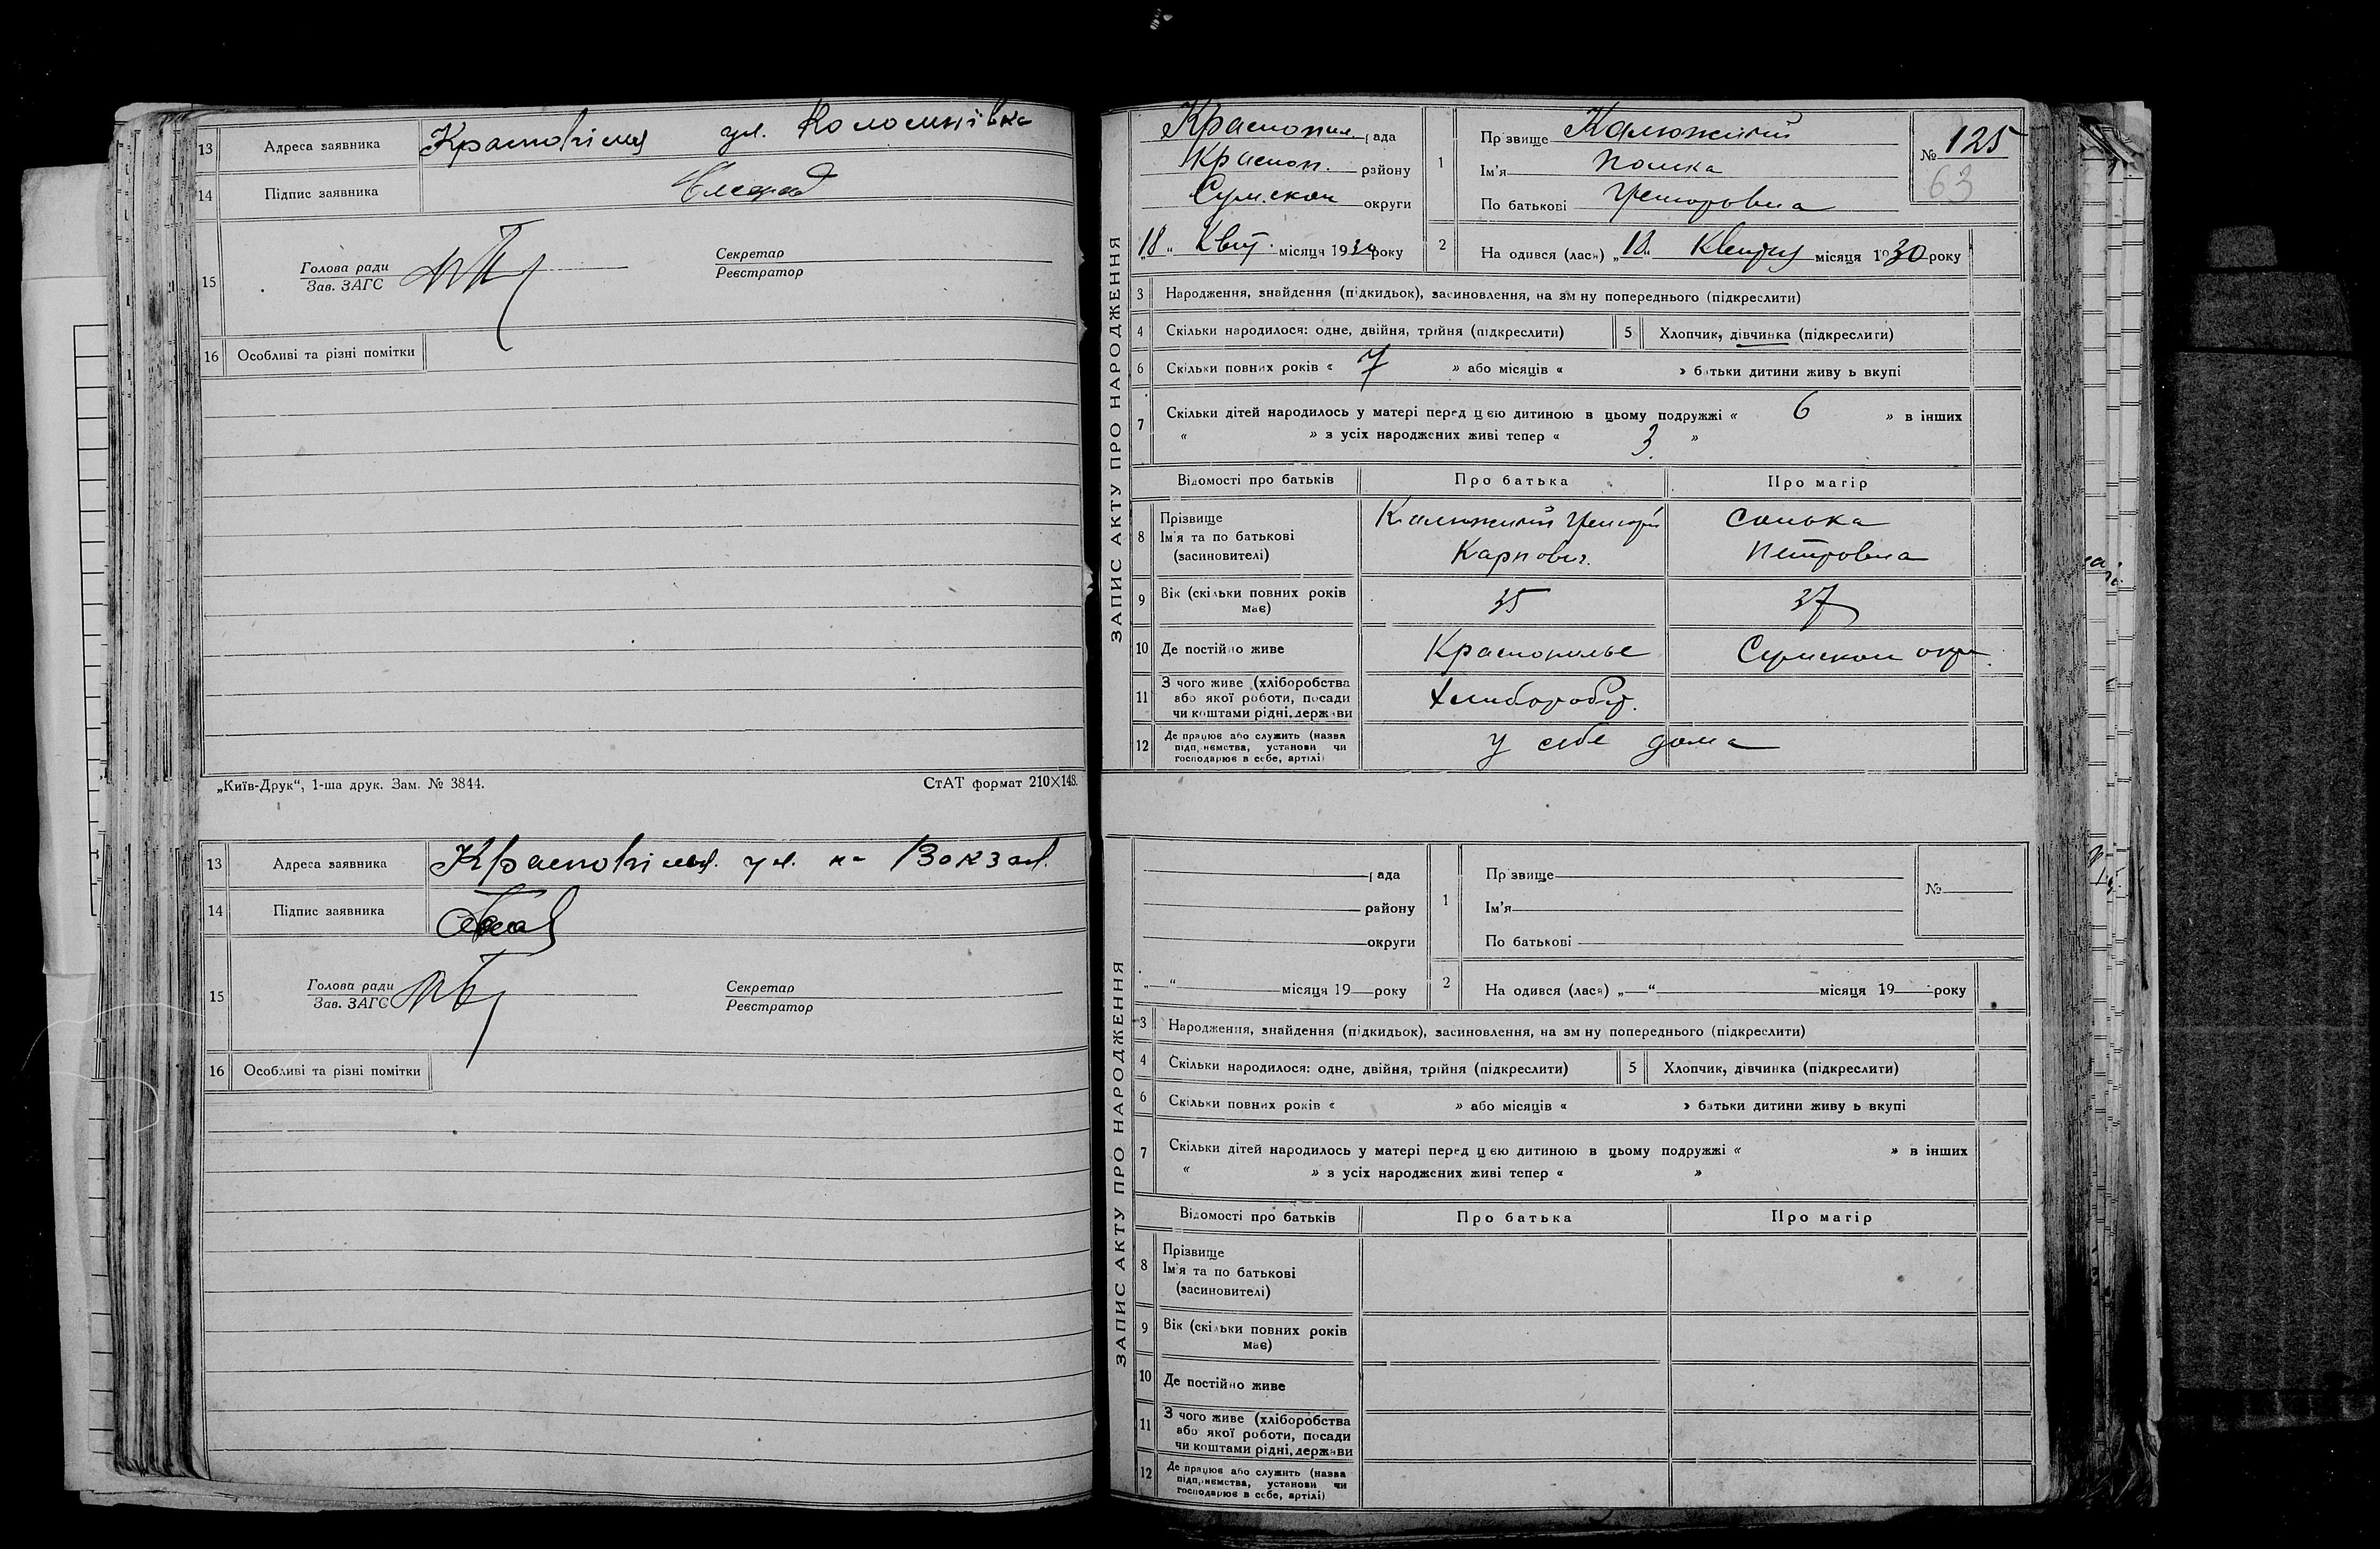 13 Адреса заявника Краснопілля ул. Коломийівка
14 Підпис заявника
15 Голова ради
Зав. ЗАГС
Секретар
Реєстратор
16 Особливі та різні помітки
„Київ-Друк“, 1-ша друк. Зам. № 3844. СтАТ формат 210×148.
13 Адреса заявника Краснопілля. ул. на Вокзал.
14 Підпис заявника
15 Голова ради
Зав. ЗАГС
Секретар
Реєстратор
16 Особливі та різні помітки
ЗАПИС АКТУ ПРО НАРОДЖЕННЯ
Краснопил. рада
Красноп. району
Сумской округи
„18“ Квіт. місяця 1930 року
1 Прізвище Калюжний
Ім'я Полка
По батькові Григоровна
№ 125
63
2 Народився (лась) „18“ Квітня місяця 1930 року
3 Народження, знайдення (підкидьок), засиновлення, на зміну попереднього (підкреслити)
4 Скільки народилося: одне, двійня, трійня (підкреслити) 5 Хлопчик, дівчинка (підкреслити)
6 Скільки повних років « 7 » або місяців « » батьки дитини живуть вкупі
7 Скільки дітей народилось у матері перед цією дитиною в цьому подружжі « 6 » в інших
« » з усіх народжених живі тепер « 3 »
Відомості про батьків Про батька Про матір
8 Прізвище
Ім'я та по батькові
(засиновителі)
Калюжний Григорій
Карпович.
Солька
Петровна
9 Вік (скільки повних років
має)
35 37
10 Де постійно живе Краснополье Сумской окр.
11 З чого живе (хліборобства
або якої роботи, посади
чи коштами рідні, держави
Хлибороб.
12 Де працює або служить (назва
підприємства, установи чи
господарює в себе, артілі)
у себе дома
ЗАПИС АКТУ ПРО НАРОДЖЕННЯ
рада
району
округи
„ “ місяця 19 року
1 Прізвище
Ім'я
По батькові
№
2 Народився (лась) „ “ місяця 19 року
3 Народження, знайдення (підкидьок), засиновлення, на зміну попереднього (підкреслити)
4 Скільки народилося: одне, двійня, трійня (підкреслити) 5 Хлопчик, дівчинка (підкреслити)
6 Скільки повних років « » або місяців « » батьки дитини живуть вкупі
7 Скільки дітей народилось у матері перед цією дитиною в цьому подружжі « » в інших
« » з усіх народжених живі тепер « »
Відомості про батьків Про батька Про матір
8 Прізвище
Ім'я та по батькові
(засиновителі)
9 Вік (скільки повних років
має)
10 Де постійно живе
11 З чого живе (хліборобства
або якої роботи, посади
чи коштами рідні, держави
12 Де працює або служить (назва
підприємства, установи чи
господарює в себе, артілі)